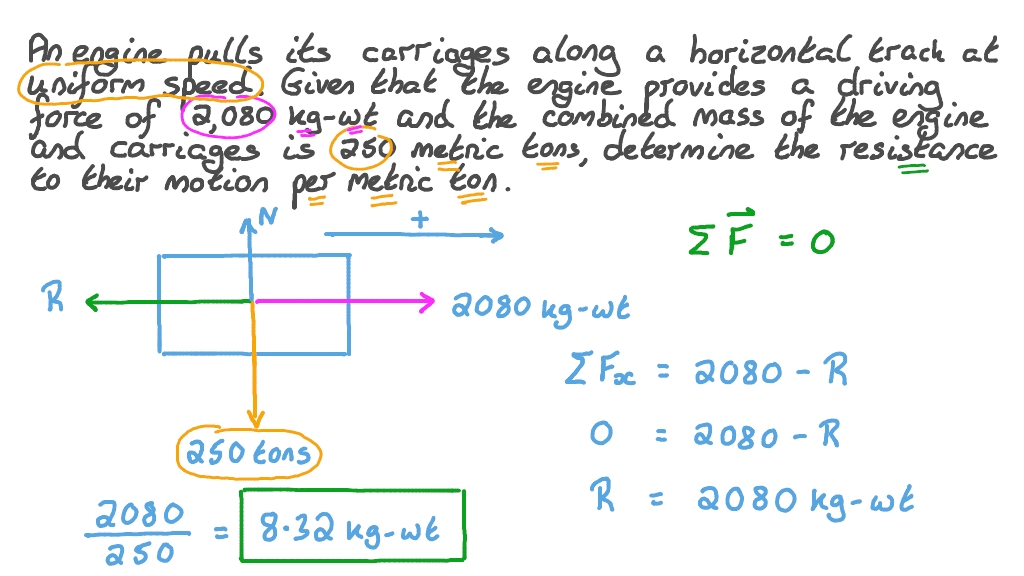 An engine pulls its carriages along a horizontal track at
uniform speed. Given that the engine provides a driving
force of 2,080 kg-wt and the combined mass of the engine
and carriages is 250 metric tons, determine the resistance
to their motion per metric ton.
N
+
Σ F⃗ = 0
R
2080 kg-wt
Σ Fx = 2080 - R
0 = 2080 - R
250 tons
R = 2080 kg-wt
2080/250 = 8.32 kg-wt